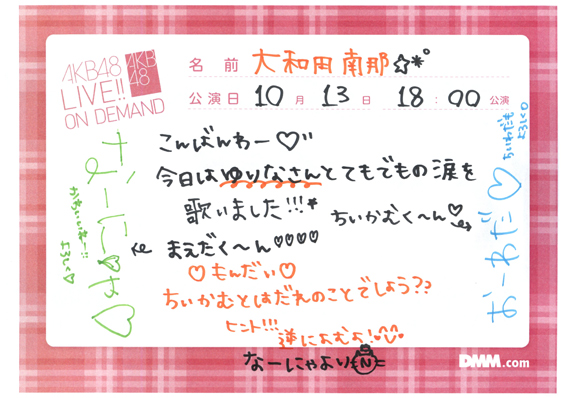 AKB48
LIVE!!
ON DEMAND
AKB
48
名前 大和田南那☆*°
公演日 10月 13日 18:00公演
こんばんわー♡
今日はゆりなさんとてもでもの涙を
歌いました!!!*
ちいかむく〜ん♡
まえだく〜ん♡♡♡♡
♡もんだい♡
ちいかむとはだれのことでしょう??
ヒント!!! 逆によむよ!
なーにゃより
N
なーにゃ♡
かわいいねー!!
よろしく♡
おーわだ♡
ちいわだも
よろしく
DMM.com